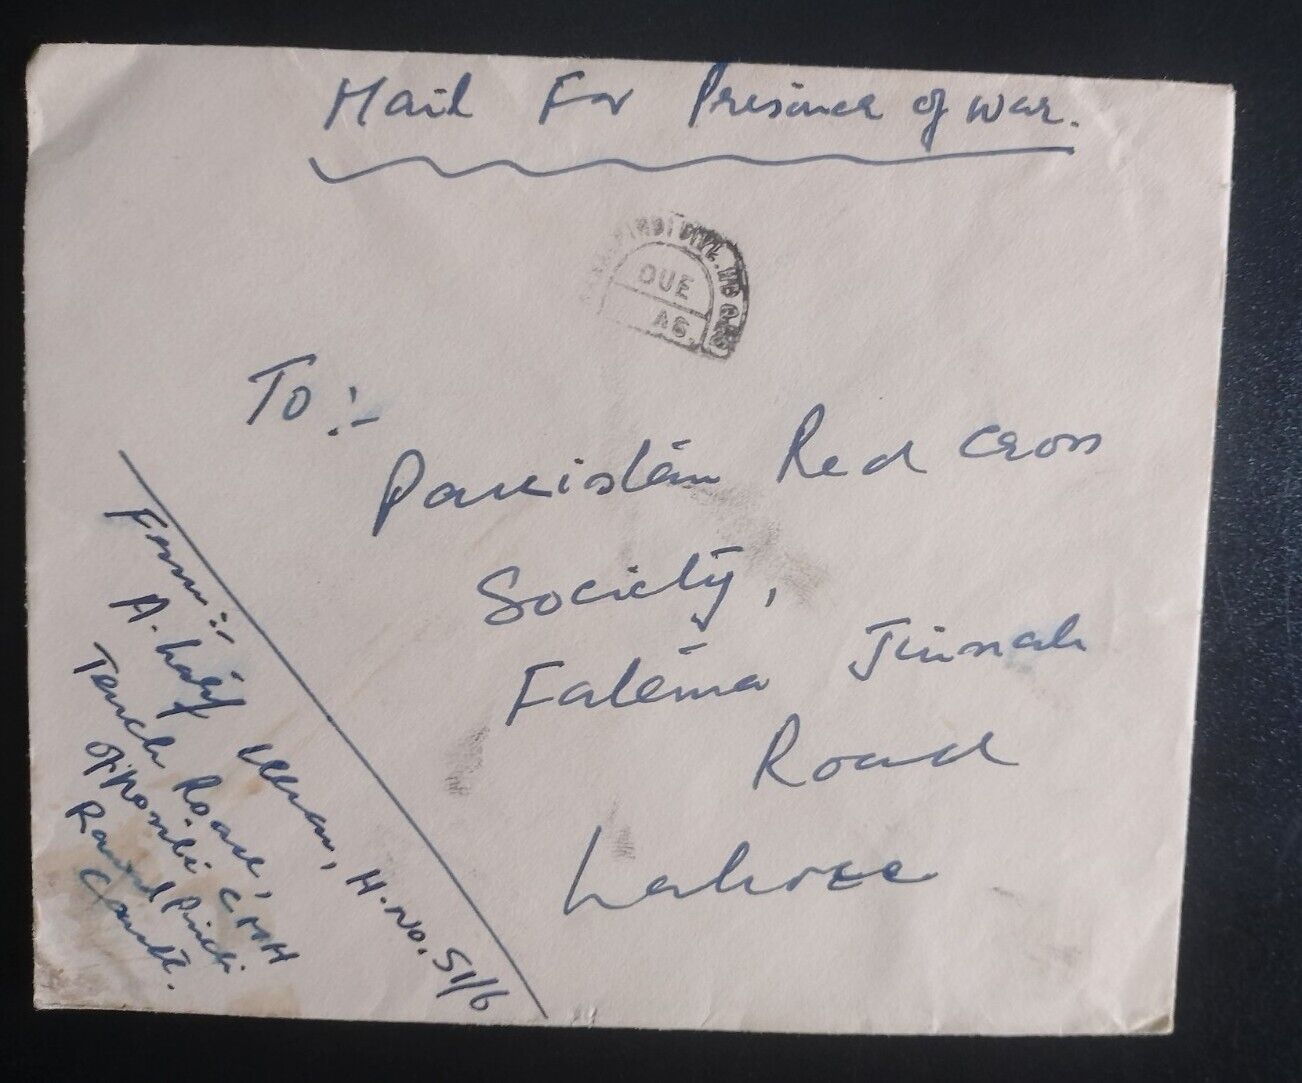 Mail For Prisoner of war.
DUE
AG.
To :-
Pakistan Red Cross
Society,
Fatima Jinnah
Road
Lahore
From :-
A. H.No. 51/6
Tench Road,
opposite CMH
Rawalpindi
Cantt.